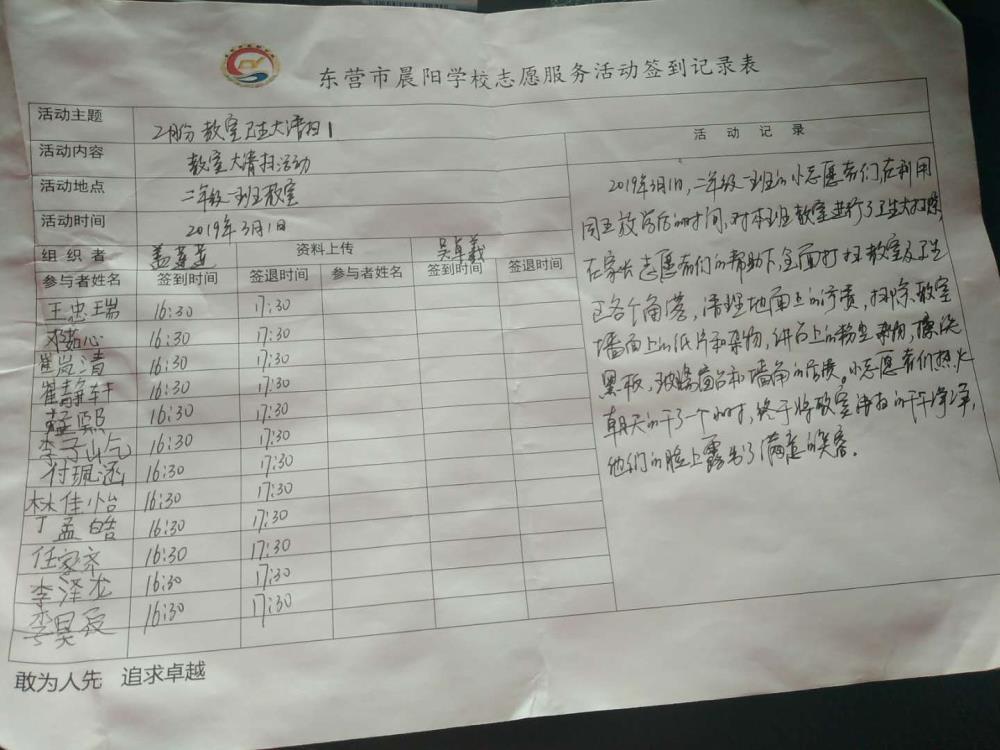 东营市晨阳学校志愿服务活动签到记录表
活动主题 二月份教室卫生大清扫1
活动内容 教室大清扫活动
活动地点 二年级一班教室
活动时间 2019年3月1日
组织者 资料上传 吴卓羲
参与者姓名 签到时间 签退时间 参与者姓名 签到时间 签退时间
王忠瑞 16:30 17:30
邓茹心 16:30 17:30
崔岚清 16:30 17:30
崔静轩 16:30 17:30
孟熙 16:30 17:30
李子山 16:30 17:30
付珮涵 16:30 17:30
林佳怡 16:30 17:30
丁孟皓 16:30 17:30
任家齐 16:30 17:30
李泽龙 16:30 17:30
李昊辰 16:30 17:30
活动记录
2019年3月1日,二年级一班的小志愿者们,在利用
周五放学后的时间,对本班教室进行了卫生大扫除,
在家长志愿者们的帮助下,全面打扫教室及卫生
区各个角落,清理地面上的污渍,扫除教室
墙面上的纸片和杂物,讲台上的粉尘杂物,擦洗
黑板,玻璃窗台和墙角的污渍。小志愿者们热火
朝天的干了一个小时,终于将教室清扫的干干净净,
他们的脸上露出了满意的笑容。
敢为人先 追求卓越